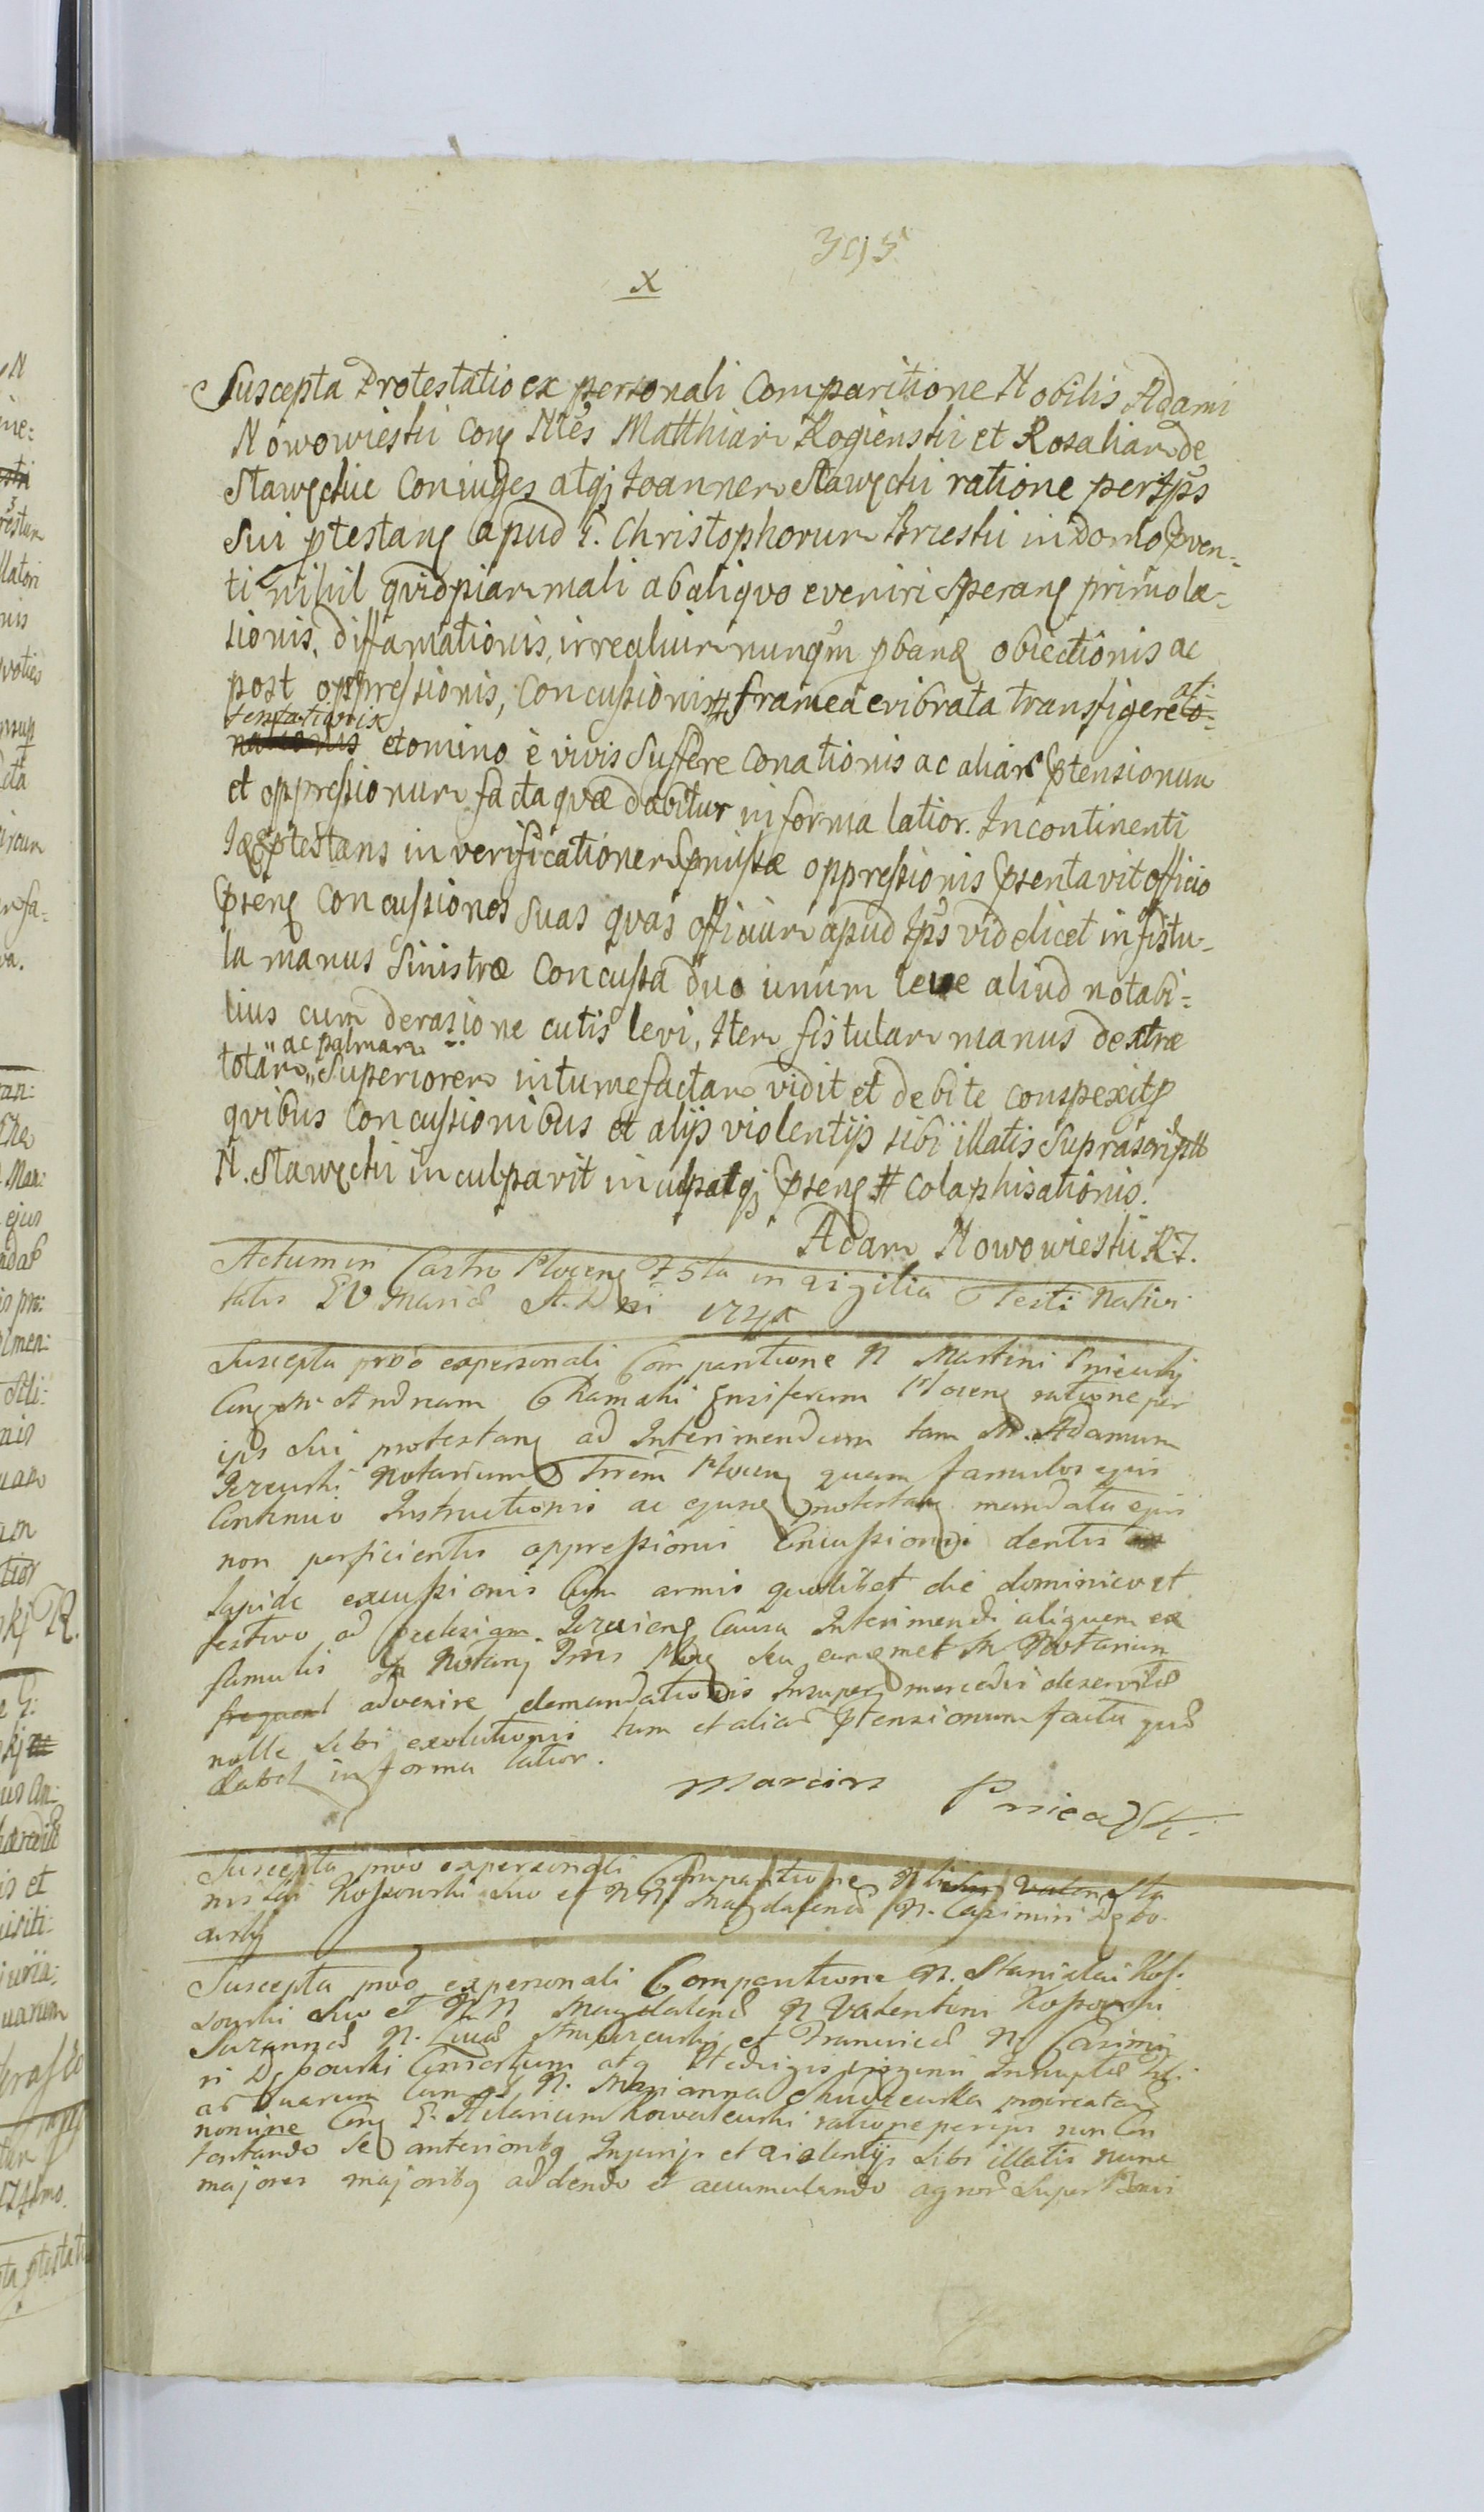 395
X
Suscepta Protestatio ex personali Comparitione Nobilis Adami
Nowowieski Conq Nles Matthiam Rogienski et Rosaliam de
Stawęckie Coniuges atq Joannem Stawęcki ratione per Ips
sui ptestanq apud G. Christophorum Brzeski in domo pven-
ti nihil qvidpiam mali ab aliqvo eveniri speranq primo læ-
sionis, diffamationis, irrealium nunqm pbanq obiectionis ac
post oppressionis, Concussionis # framea evibrata transfigere ati
tentationis
nationis et omino è vivis Suffere Conationis ac aliar ptensionum
et oppressionum facta quæ dabitur in forma latior. Incontinenti
Idq ptestans in verificationem pmissæ oppressionis psentavit officio
psenq Concussiones suas qvas officium apud Ips videlicet in fistu-
la manus Sinistræ Concussa duo unum leve aliud notabi=
lius cum derasione cutis levi, Item fistulam manus dextræ
ac palmam
totam Superiorem intumefactam vidit et debite conspexit p
qvibus Concussionibus et alijs violentijs sibi illatis Suprascript
N. Stawęcki inculpavit inculpatq psenq # colaphisationis.
Adam Nowowieski R.J.
Actum in Castro Plocenq Fa 5ta in vigilia Festi Nativi
tatis BV Mariæ A. D
Suscepta prõo ex personali Comparitione N Martini Pniewski
Conq M. Andream Ensiferum Plocenq ratione per
ips sui protestanq ad Interimendum tam M. Adamum
Notarium Trem Plocenq quam famulos ejus
Continuo Instructionis ac ejusq protestanq mandata ejus
non perficientis oppressionis Concussionis dentis
lapide excussionis Cum armis quolibet die dominico et
festivo ad Ecclesiam Causa Interimendi aliquem ex
famulis M Notarij Tris Plocq seu eumqmet M Notarium
frequent advenire demandationis Insuper mercedis deservitæ
nolle sibi exolutionis tum et aliar ptensionum facta quæ
dabit in forma latior.
Marcin
Suscepta prõo ex personali Comparitione Nbilis Sta
nislai Kossowski suo et N.N. Magdalenæ N. Casimiri Dębo-
wski
Suscepta prõo ex personali Comparitione N. Stanislai Kos-
sowski suo et N N Magdalenæ N Valentini Kossowski
Suzannæ N. Lucæ et Franciscæ N. Casimi
ri Dębowski Consortum atq Hedvigis virginis Innuptæ
ac suarum N. Marianna procreatar
nomine Conq G. Hilarium Kowalewski ratione per ips non Con
tentando se anterioribq Injurijs et violentijs sibi illatis nunc
majores majoribq addendo et accumulando agnos super Bonis